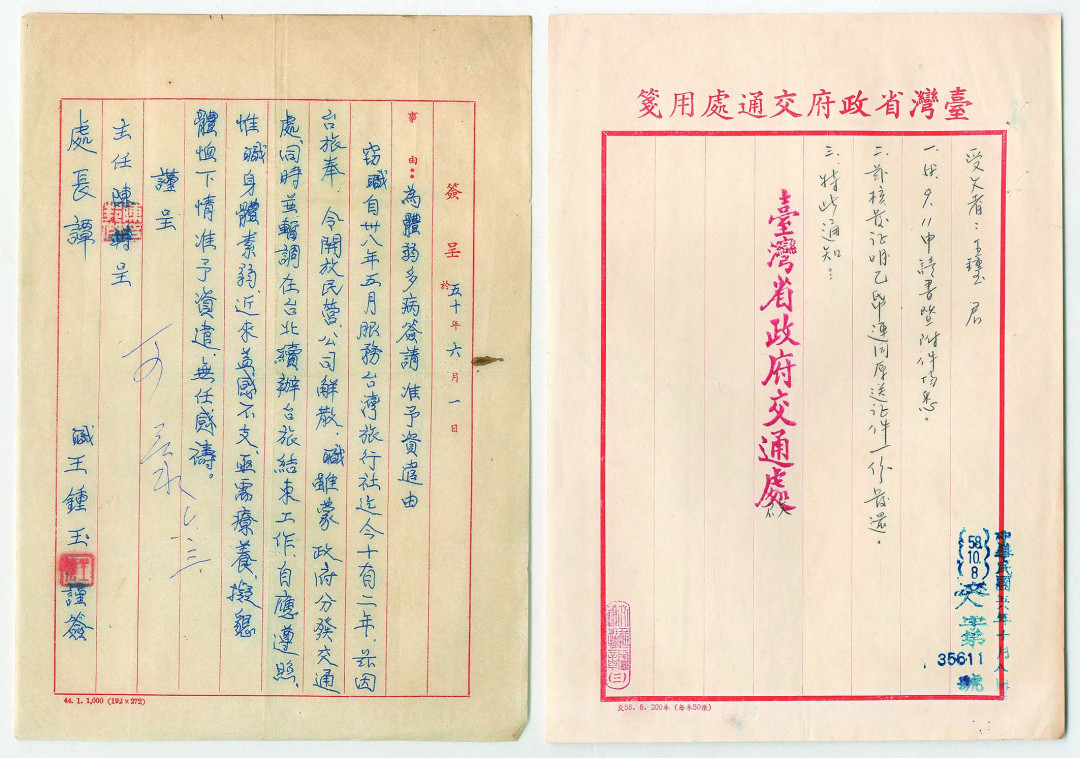 簽呈 於五十年六月一日
事由：為體弱多病簽請 准予資遣由
竊職自卅八年五月服務台灣旅行社迄今十有二年，茲因
台旅奉 令開放民營，公司解散，職雖蒙 政府分發交通
處，同時並暫調在台北續辦台旅結束工作，自應遵照，
惟職身體素弱，近來益感不支，亟需療養，擬懇
體恤下情准予資遣，無任感禱。
謹呈
主任陳 轉呈
處長譚
職王鍾玉謹簽
可
六、三、
44. 1. 1,000 (192×272)
臺灣省政府交通處用箋
受文者：王鍾玉 君
一、58.9.11申請書暨附件均悉。
二、茲核發証明乙帋連同原送証件一份發還。
三、特此通知：
臺灣省政府交通處 啟
中華民國五八年十月八日
58. 10. 8
交 字第 35611 號
交58. 8. 200本 (每本50張)